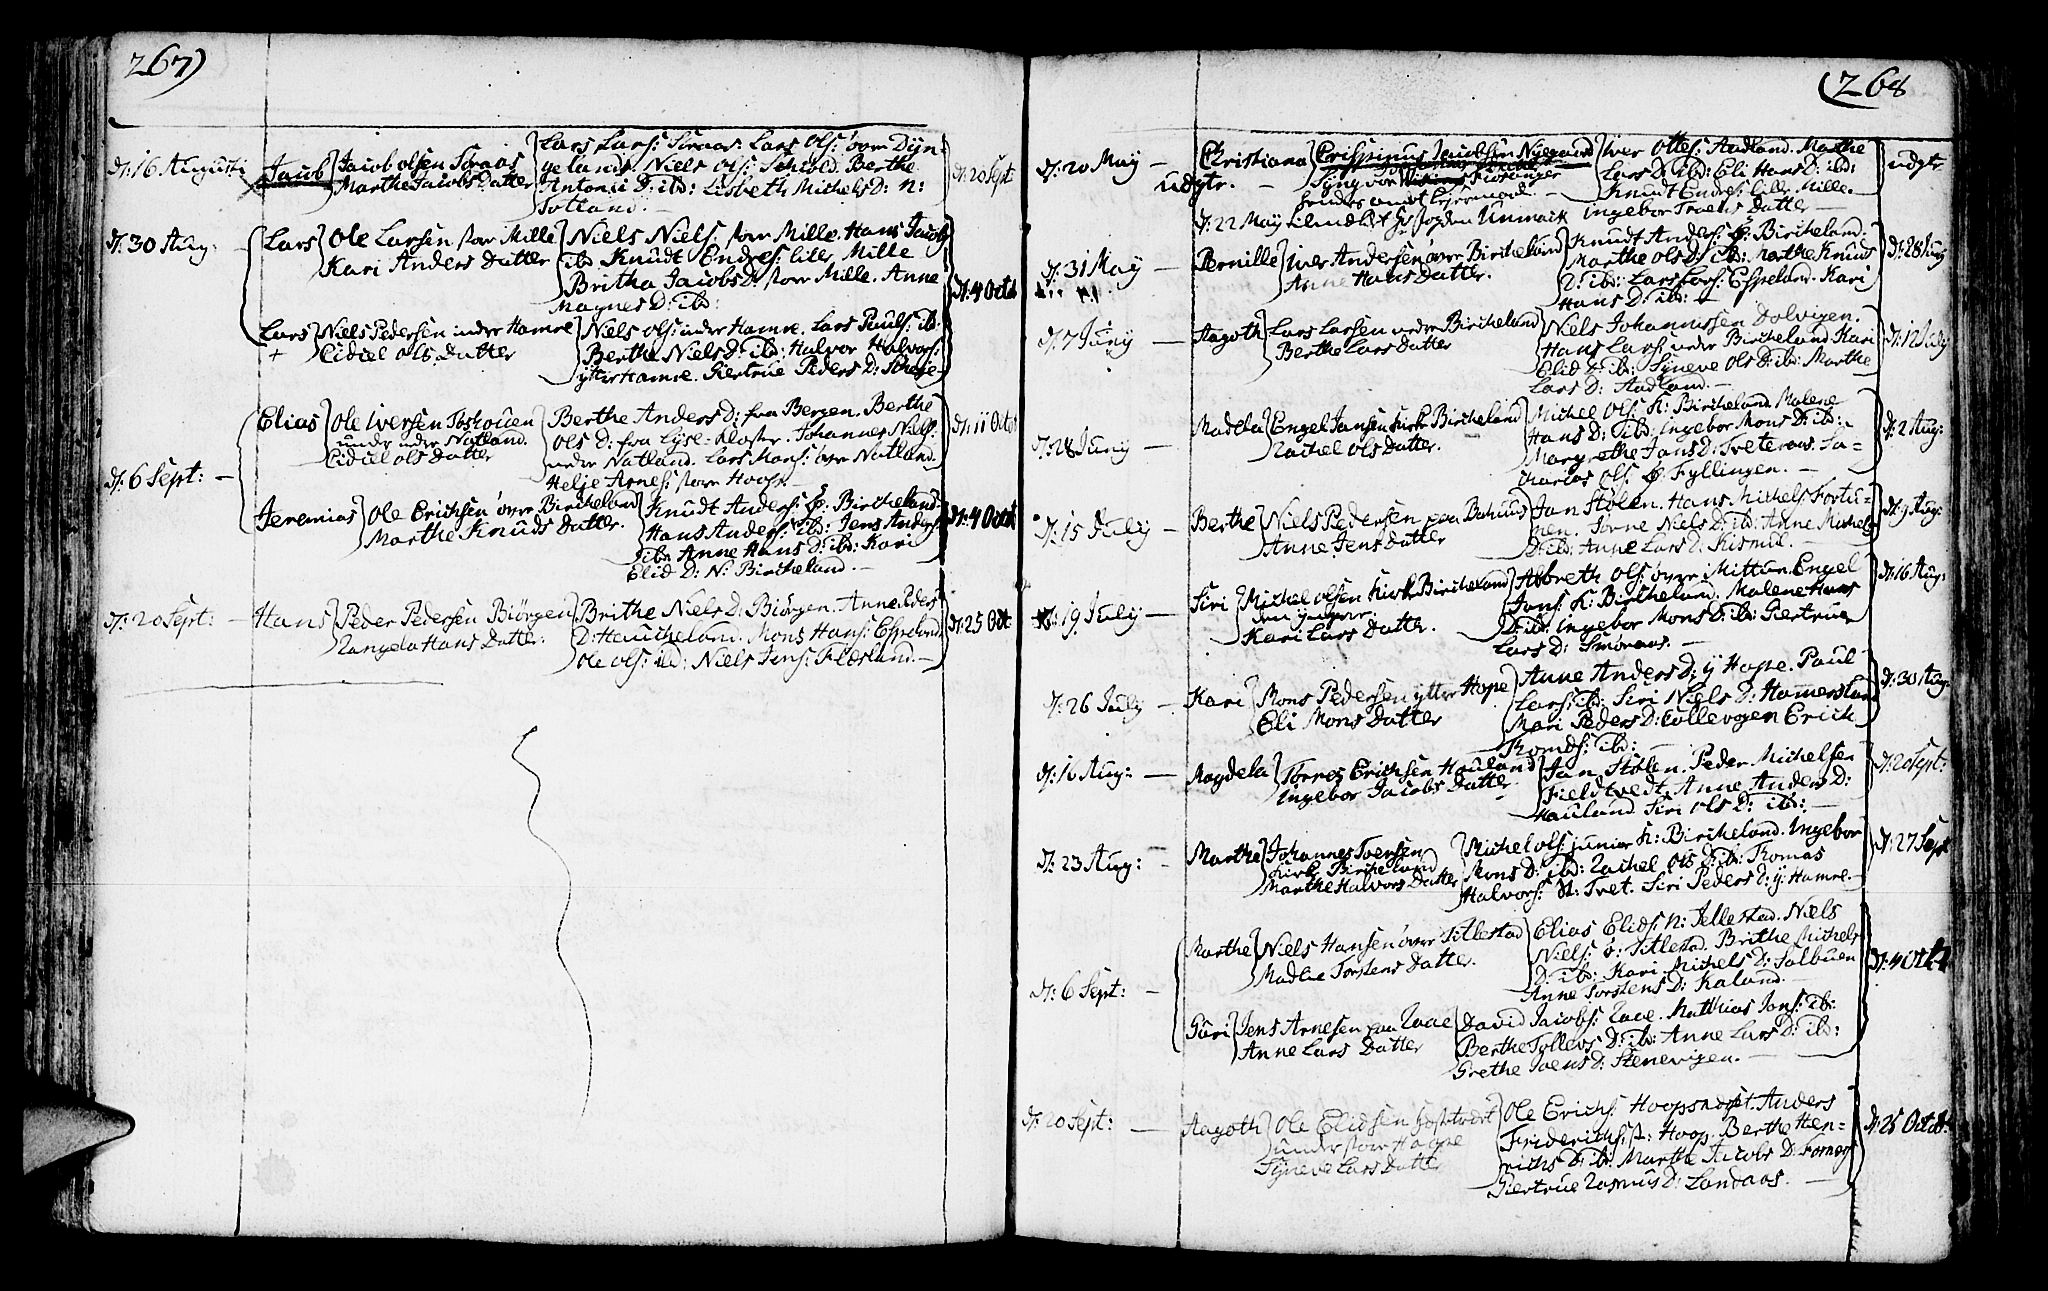 267)
d: 16 Augusti
Jacob
Jacob olsen Soraas
Marthe Jacobs Datter
Lars Lars: Soraas. Lars Ols: øvre Dÿn-
gelands. Niels Ols: Schiold. Berthe
Antoni D: ibd: Lisbeth Michels D: N:
Totland.
d: 20 Sept
d: 30 Aug:
Lars
Ole Larsen stor Mille
Kari Anders Datter
Niels Niels: stor Mille. Hans Jacobs
ibd. Knudt Endres: litle Mille
Britha Jacobs D: stor Mille. Anne
Magnes D: ibd:
d: 4 Octb
Lars
+
Niels Pedersen indre Hamre
Eidiel Ols Datter
Niels Ols: indre Hamre. Lars Pauls: ib:
Berthe Niels D: ibd: Halvor Halvors:
ÿtter Hamre. Giertrue Peders D:
d: 6 Sept: -
Elias
Ole Iversen
under nedre Natland.
Eidiel ols Datter
Berthe Anders D: fra Bergen. Berthe
Ols D: fra Lyse-Kloster. Johannes Niels:
nedre Natland. Lars Mons: øvre Natland.
Helje Arnes: store Hoop. -
d: 11 Octb
Jeremias
Ole Erichsen øvre Bircheland
Marthe Knuds Datter.
Knudt Anders: Ø: Bircheland.
Hans Anders: ibd: Jens Anders:
ibd: Anne Hans D: ibd: Kari
Elid D: N: Bircheland. -
d: 4 Octb
d: 20 Sept: -
Hans
Peder Pedersen Biørgen
Rangela Hans Datter.
Brithe Niels D: Biørgen. Anne Peders
D: Haucheland. Mons Hans: Espeland
Ole Ols: ibd: Niels Jens: Flæsland. -
d: 25 Oct
(268
d: 20 May -
udgtr. -
Christiana
Crispinus Jacobsen Nygaard
d: 22 May
Iver Ottes: Aadland. Marthe
Lars D: ibd: Eli Hans D: ibd:
Knudt Endres: litle Mille.
Ingebor Troels Datter -
udgtr
d: 31 May -
Pernille
Iver Andersen øvre Bircheland
Anne Hans Datter.
Knudt Anders: Ø: Bircheland.
Marthe ols D: ibd: Marthe Knuds
D: ibd: Lars Lars: Espeland. Kari
Hans D: ibd: -
d: 28 Juny
d: 7 Juny -
Aagoth
Lars Larsen nedre Bircheland
Berthe Lars Datter
Niels Johannissen Dolvigen.
Hans Lars: nedre Bircheland Kari
Elid D: ib: Sÿneve Ols D: ibd: Marthe
Lars D: Aadland. -
d: 12 July
d: 28 Juny -
Madela
Engel Jansen Kirk Bircheland
Rachel Ols Datter.
Michel Ols: K: Bircheland. Malene
Hans D: ibd: Ingebor Mons D: ibd:
Margrethe Jans D: Tveteraas. Za-
charias Ols: Ø: Fyllingen. -
d: 2 Aug:
d: 15 July -
Berthe
Niels Pedersen paa
Anne Jens Datter
Jan Stølen. Hans Michels Fortu-
nen. Jørne Niels D: ibd: Anne Michels
D: ibd: Anne Lars D: Kismul. -
d: 9 Aug:
d: 19 July -
Siri
Michel olsen Kirk Bircheland
den yngre.
Kari Lars Datter.
Albreth Ols: øvre Mittun. Engel
Jans: K: Bircheland. Malene Hans
D: ibd: Ingebor Mons D: ib: Giertrue
Lars D: Smøraas. -
d: 16 Aug:
d: 26 July -
Kari
Mons Pedersen ytter Hope
Eli Mons Datter
Anne Anders D: ÿ Hope. Paul
Lars: ib: Siri Niels D: Hamersland
Mari Peders D: Tollevogen Erich
Thomæs: ibd: -
d: 30 Aug.
d: 16 Aug: -
Magdela
Torres Erichsen Houland
Ingebor Jacobs Datter
Jan Stølen. Peder Michelsen
Fieldtvedt. Anne Anders D:
Houland. Siri Ols D: ibd: -
d: 20 Sept:
d: 23 Aug: -
Marthe
Johannes Iversen
Kirk Bircheland
Marthe Halvors Datter
Michel Ols: junior K: Bircheland. Ingebor
Mons D: ibd: Rachel Ols D: ib: Thomas
Halvors: St: Tvet. Siri Peders D: ÿ: Hamre. -
d: 27 Sept
d: 6 Sept: -
Marthe
Niels Hansen øvre Titlestad
Madlie Torstens Datter.
Elias Elids: N: Jellestad. Niels
Niels: ø: Titlestad. Brithe Michels
D: ib: Kari Michels D: Sælbuen
Anne Torstens D: Kaland.
d: 4 Octb
Guri
Jens Arnesen paa Raae
Anne Lars Datter
David Jacobs: Raae. Matthias Jans: ib:
Berthe Tollevs D: ib: Anne Lars D: ib:
Grethe Ivens D: Stenevigen. -
d: 20 Sept: -
Aagoth
Ole Elidsen
under stor Hope
Sÿneve Lars Datter
Ole Erichs: Hoopsnæset. Anders
Friderichs: st: Hoop. Berthe Hen-
richs D: ib: Marthe Jacobs D:
Giertrue Rasmus D: Landaas. -
d: 25 Octob: